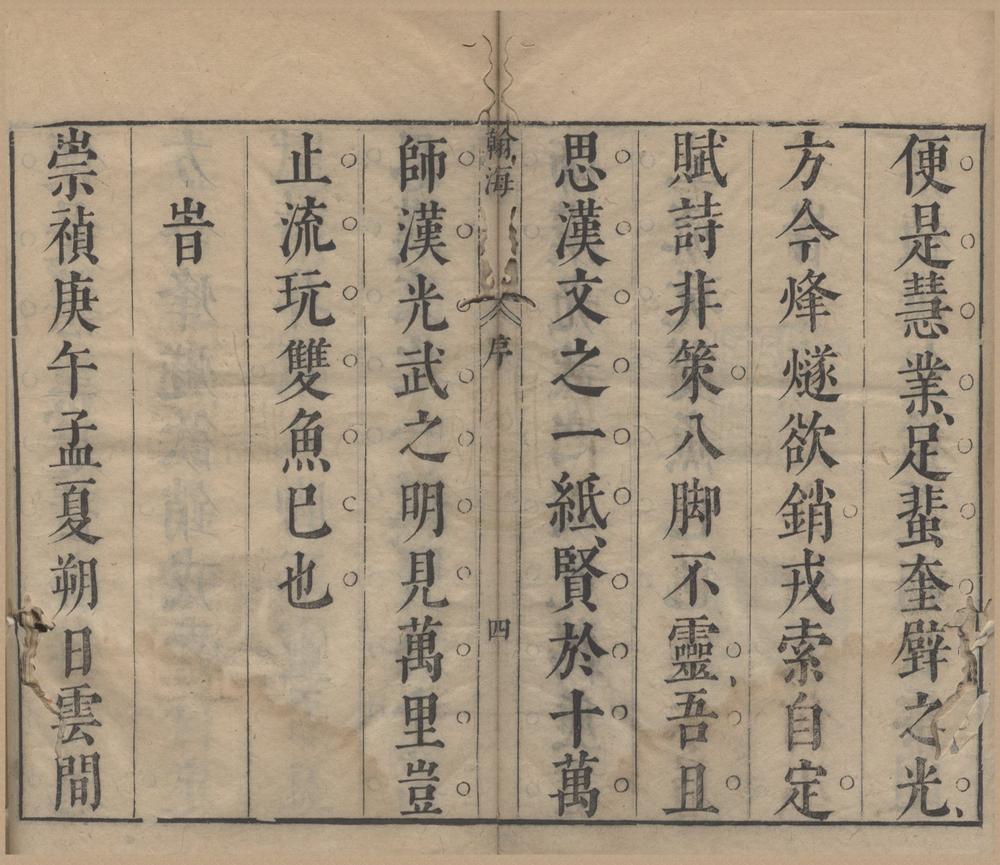 便是慧業、足蜚奎壁之光、
方今烽燧欲銷戎索自定
賦詩非策八脚不靈、吾且
思漢文之一紙、賢於十萬
翰海 序 四
師漢光武之明見萬里豈
止流玩雙魚巳也
旹
崇禎庚午孟夏朔日雲間